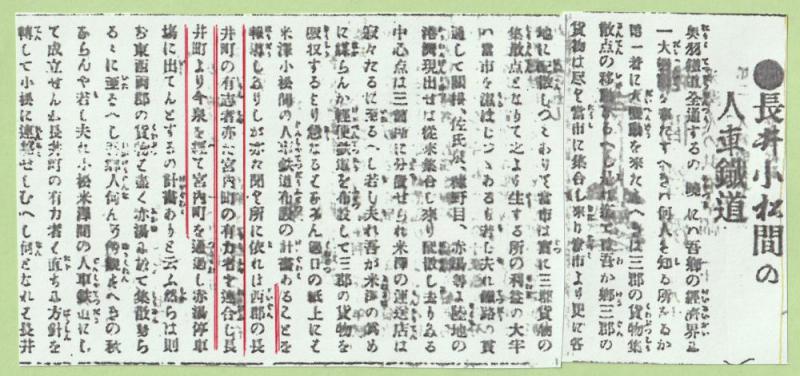 ●長井小松間の
人車鐵道
奥羽鐵道全通するの曉には吾郷の經濟界に
一大變動を來たすへきは何人も知る所なるか
第一着に大變動を來たすへきは三郡の貨物集
散点の移動なるへし是れ迄ては吾か郷三郡の
貨物は尽を當市に集合し來り當市より更に各
地に配散しつヽありて當市は實に三郡貨物の
集散点となりて之より生する所の利益の大半
は當市を潤はしつヽあるも若し夫れ鐵路の貫
通して關根、佐氏泉、糠野目、赤湯等よ陸地の
港灣現出せば從來集合し來り配散し去りたる
中心点は三個所に分置せられ米澤の運送店は
寂々たるに至るへし若し夫れ吾が米澤の爲め
に謀らんか輕便鉄道を布設して三郡の貨物を
吸収するより急なるはあらん過日の紙上にて
米澤小松間の人車鉄道布設の計畫あることを
報導しありしが亦た聞く所に依れは西郡の長
井町の有志者亦た宮内町の有力者を連合し長
井町より今泉を經て宮内町を通過し赤湯停車
塲に出てんとするの計畫ありと云ふ然らは則
ち東西両郡の貨物は盡く赤湯に於て集散する
ことに至るへし三郡人何んそ傍觀すへきの秋
ならんや若し夫れ小松米澤間の人車鉄道にし
て成立せんか長井町の有力者く直ちに方針を
轉して小松に連絡せしむへし何となれは長井